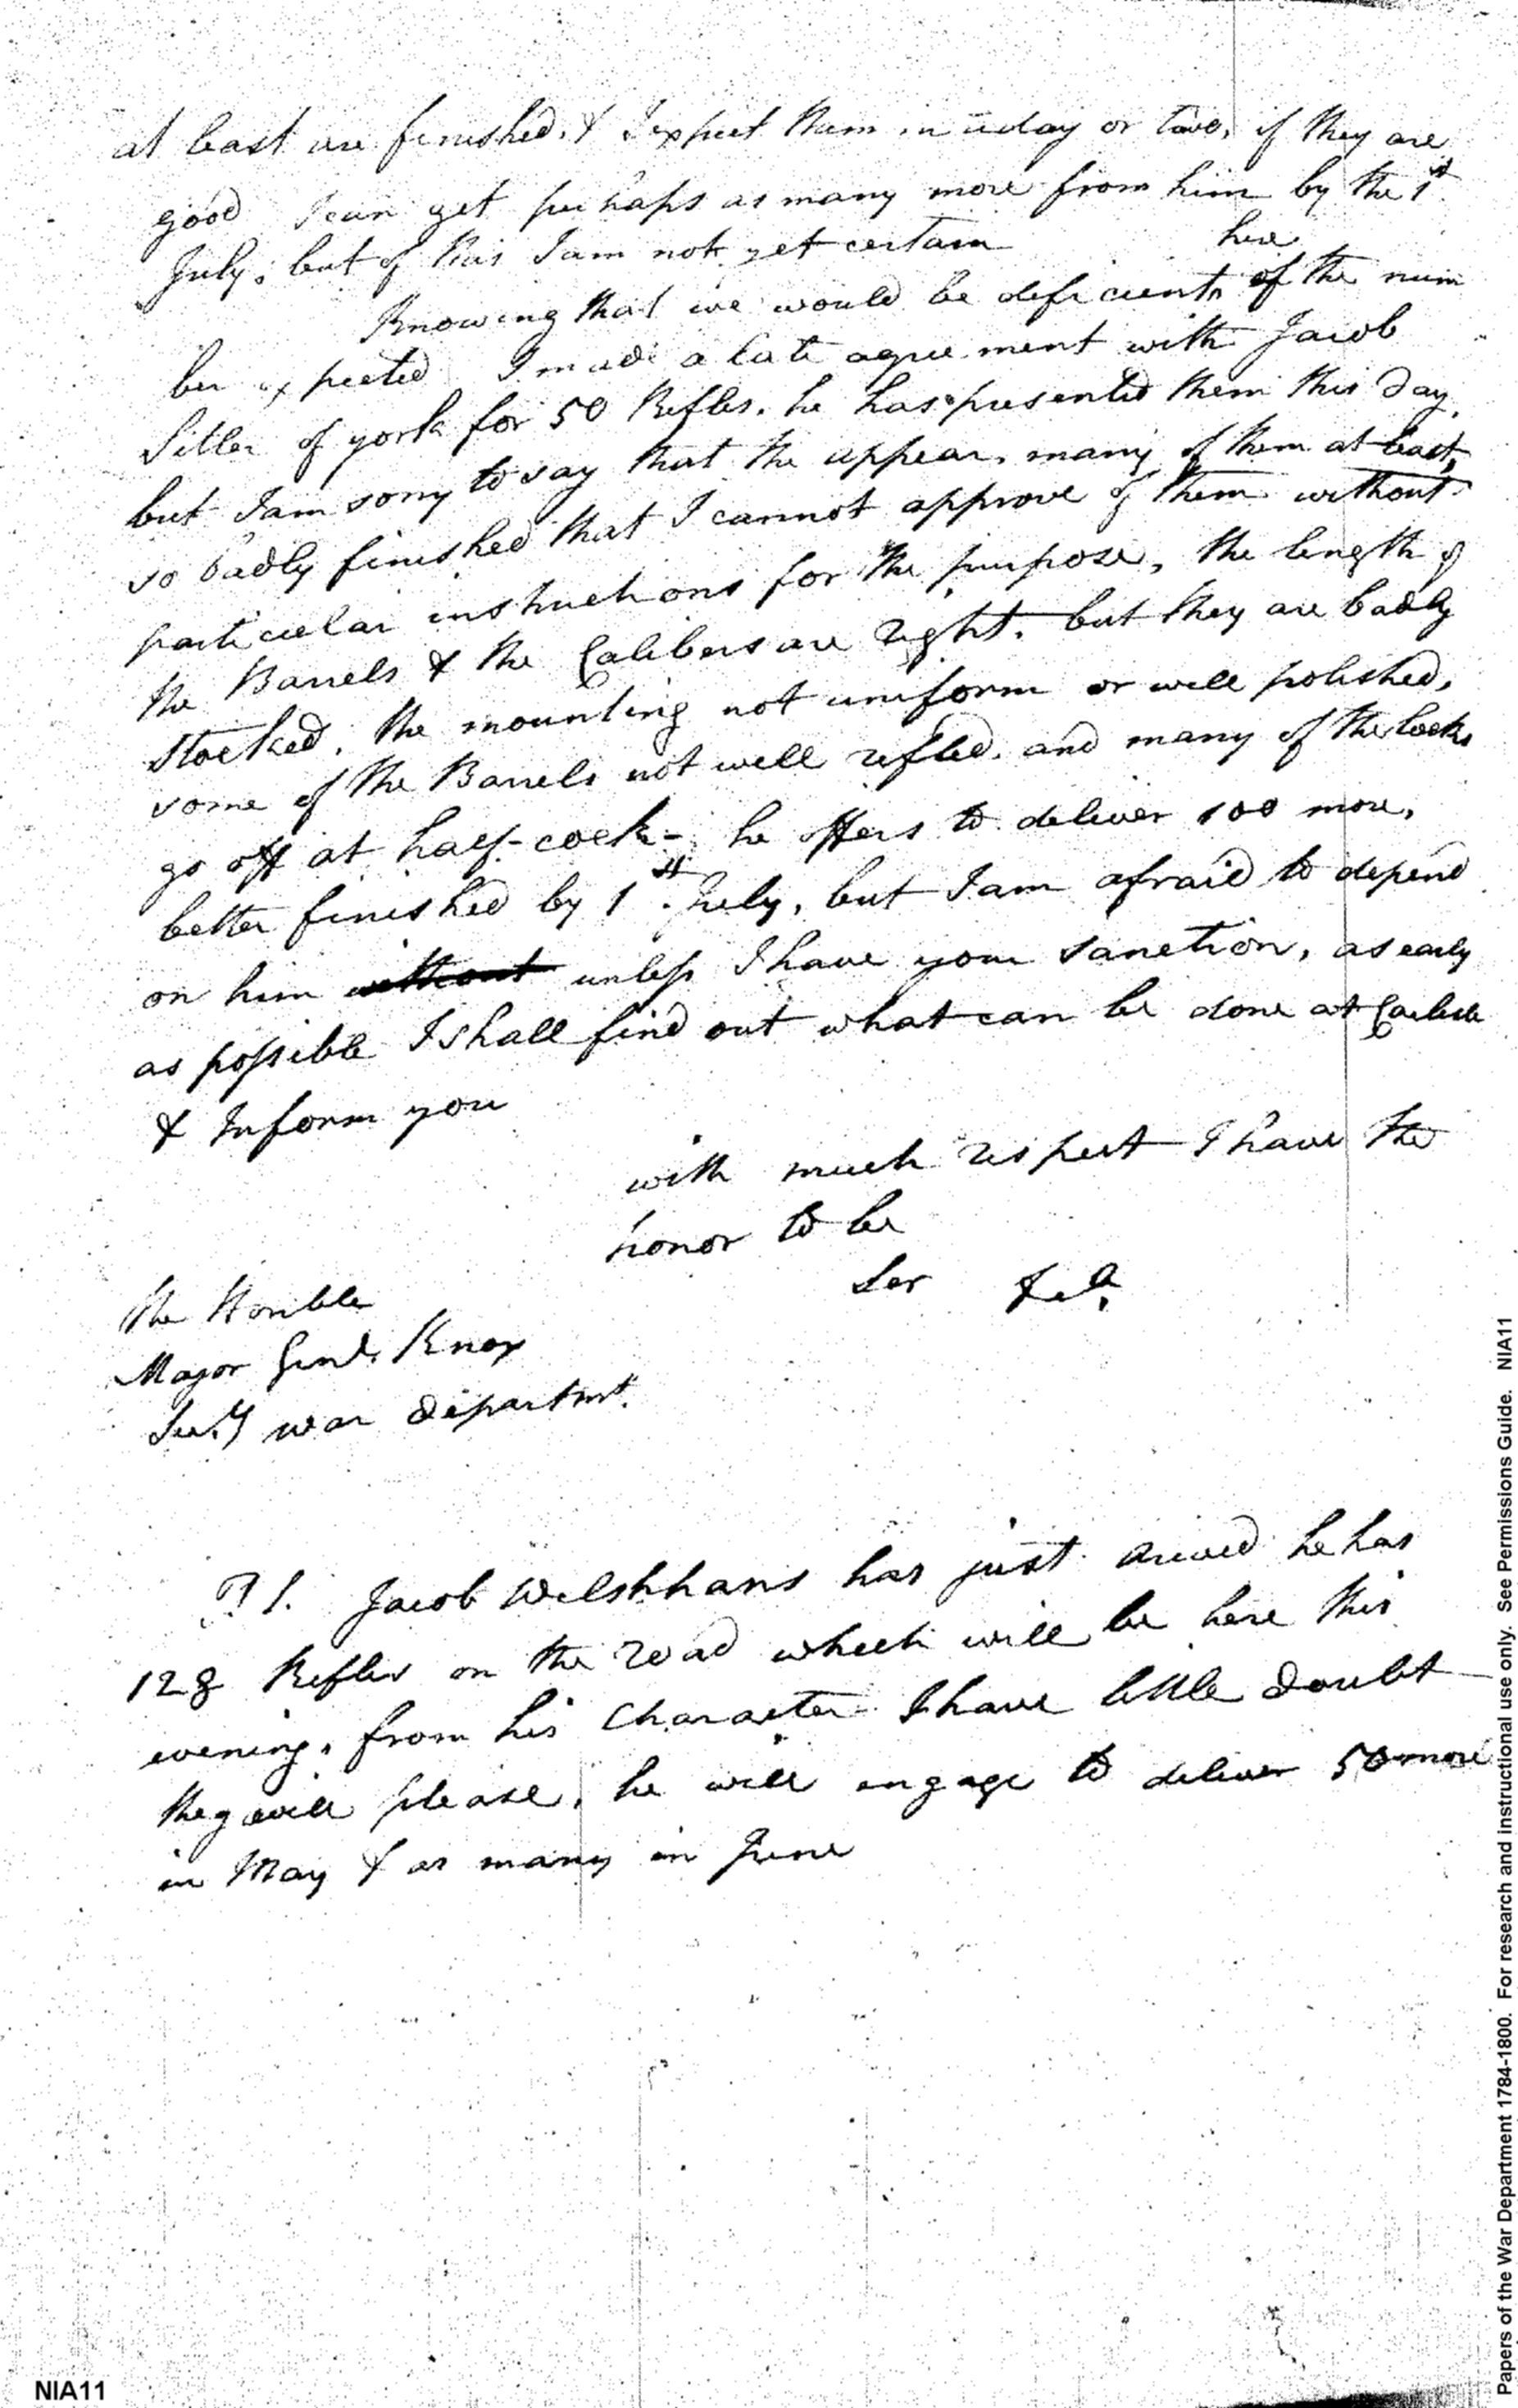 at least are finished, & I expect them in a day or two, if they are
good I can get perhaps as many more from him by the 1st
July, but of this I am not yet certain
Knowing that we would be deficient here of the num
ber expected I made a late agreement with Jacob
Sitler of york for 50 Rifles. he has presented them this day,
but I am sorry to say that the appear, many of them at least,
so badly finished that I cannot approve of them without
particular instructions for the purpose, the length of
the Barrels & the Calibers are right. but they are badly
stocked, the mounting not uniform or well polished,
some of the Barrels not well rifled, and many of the locks
go off at half-cock - he offers to deliver 100 more,
better finished by 1st July, but I am afraid to depend
on him without unless I have your sanction, as early
as possible I shall find out what can be done at Carlisle
& Inform you
with much respect I have the
honor to be
Ser &c.
The Honble
Major Genl. Knox
Secy war departmt.
P S. Jacob Welshhans has just arived he has
128 Rifles on the road which will be here this
evening, from his Character I have little doubt
they will please, he will engage to deliver 50 more
in May & as many in June
NIA11
Papers of the War Department 1784-1800. For research and instructional use only. See Permissions Guide. NIA11